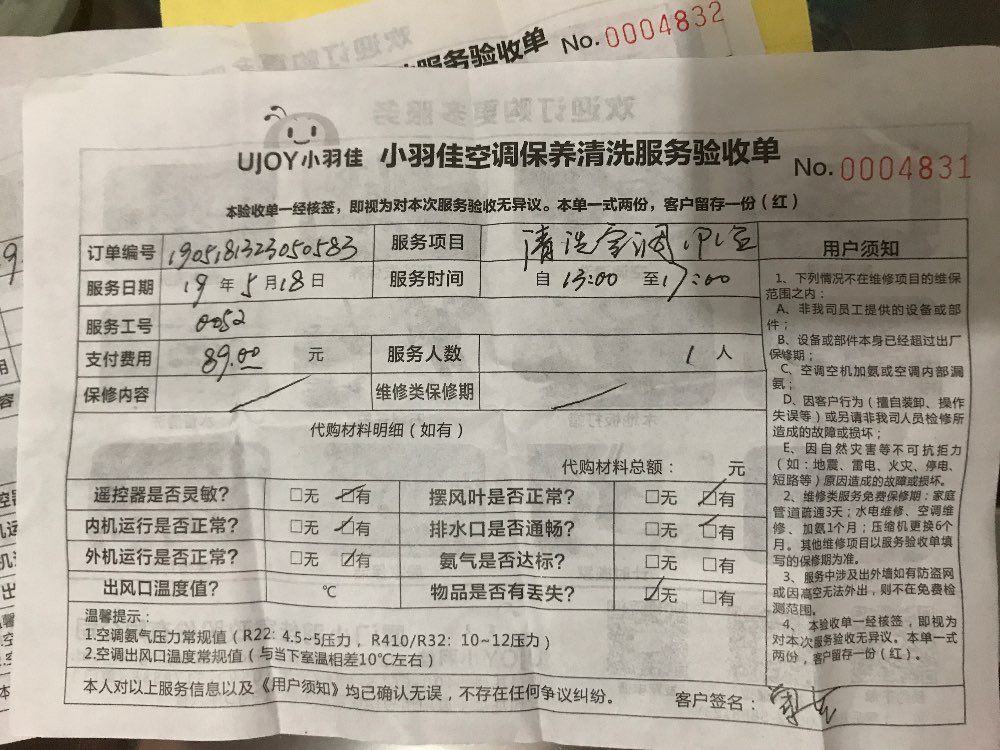 服务验收单 No. 0004832
UJOY小羽佳 小羽佳空调保养清洗服务验收单 No. 0004831
本验收单一经核签，即视为对本次服务验收无异议。本单一式两份，客户留存一份（红）
订单编号 1905181323050583 服务项目 清洗空调
服务日期 19年5月18日 服务时间 自13:00至17:00
服务工号 0052
支付费用 89.00 元 服务人数 1人
保修内容 维修类保修期
代购材料明细（如有）
代购材料总额： 元
遥控器是否灵敏？ □无 ☑有 摆风叶是否正常？ □无 ☑有
内机运行是否正常？ □无 ☑有 排水口是否通畅？ □无 ☑有
外机运行是否正常？ □无 ☑有 氨气是否达标？ □无 □有
出风口温度值？ ℃ 物品是否有丢失？ ☑无 □有
温馨提示：
1.空调氨气压力常规值（R22：4.5~5压力，R410/R32：10~12压力）
2.空调出风口温度常规值（与当下室温相差10℃左右）
本人对以上服务信息以及《用户须知》均已确认无误，不存在任何争议纠纷。 客户签名：
用户须知
1、下列情况不在维修项目的维保
范围之内：
A、非我司员工提供的设备或部
件；
B、设备或部件本身已经超过出厂
保修期；
C、空调空机加氨或空调内部漏
氨；
D、因客户行为（擅自装卸、操作
失误等）或另请非我司人员检修所
造成的故障或损坏；
E、因自然灾害等不可抗拒力
（如：地震、雷电、火灾、停电、
短路等）原因造成的故障或损坏。
2、维修类服务免费保修期：家庭
管道疏通3天；水电维修、空调维
修、加氨1个月；压缩机更换6个
月。其他维修项目以服务验收单填
写的保修期为准。
3、服务中涉及出外墙如有防盗网
或因高空无法外出，则不在免费检
测范围。
4、本验收单一经核签，即视为
对本次服务验收无异议。本单一式
两份，客户留存一份（红）。